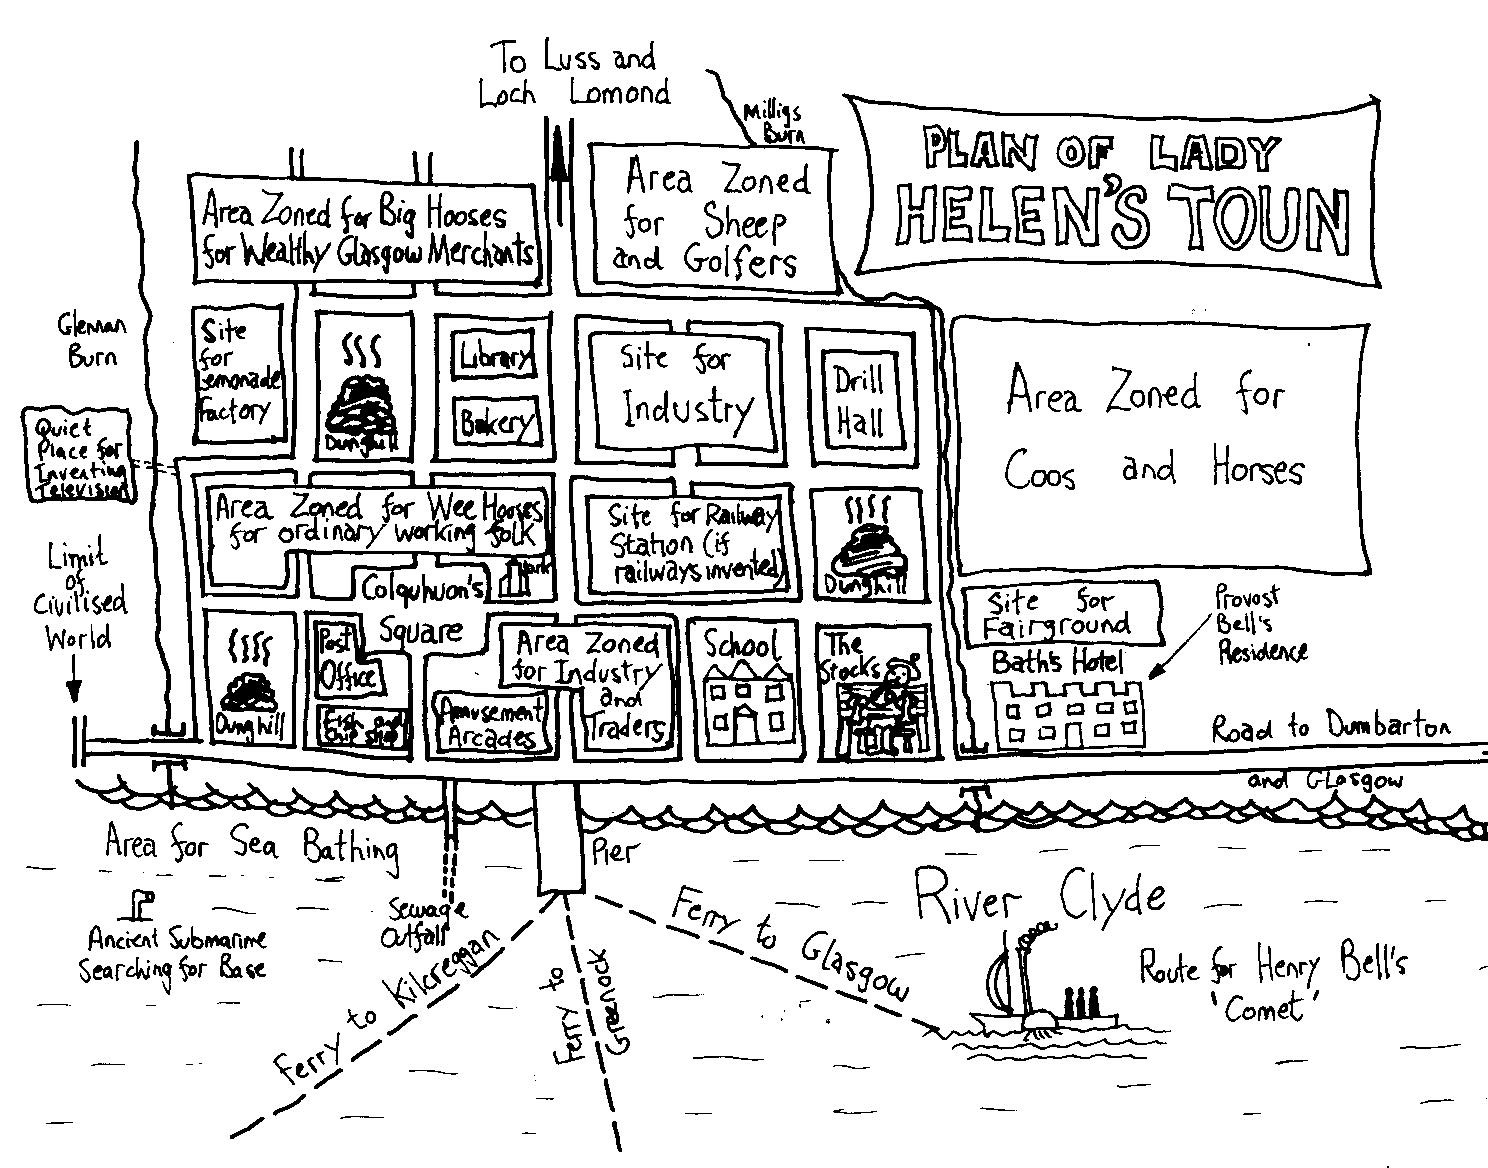 To Luss and
Loch Lomond
Milligs
Burn
PLAN OF LADY
HELEN'S TOUN
Area Zoned for Big Hooses
for Wealthy Glasgow Merchants
Area Zoned
for Sheep
and Golfers
Glennan
Burn
Site
for
Lemonade
factory
Dunghill
Library
Bakery
Site for
Industry
Drill
Hall
Area Zoned for
Coos and Horses
Quiet
Place for
Inventing
Television
Area Zoned for Wee Hooses
for ordinary working folk
Site for Railway
Station (if
railways invented)
Dunghill
Limit
of
Civilised
World
Colquhuon's
Square
Kirk
Site for
Fairground
Provost
Bell's
Residence
Dunghill
Post
Office
Fish and
Chip shop
Amusement
Arcades
Area Zoned
for Industry
and
Traders
School
The
Stocks
Bath's Hotel
Road to Dumbarton
and Glasgow
Area for Sea Bathing
Pier
Sewage
Outfall
Ancient Submarine
Searching for Base
Ferry to Kilcreggan
Ferry to
Greenock
Ferry to Glasgow
River Clyde
Route for Henry Bell's
'Comet'